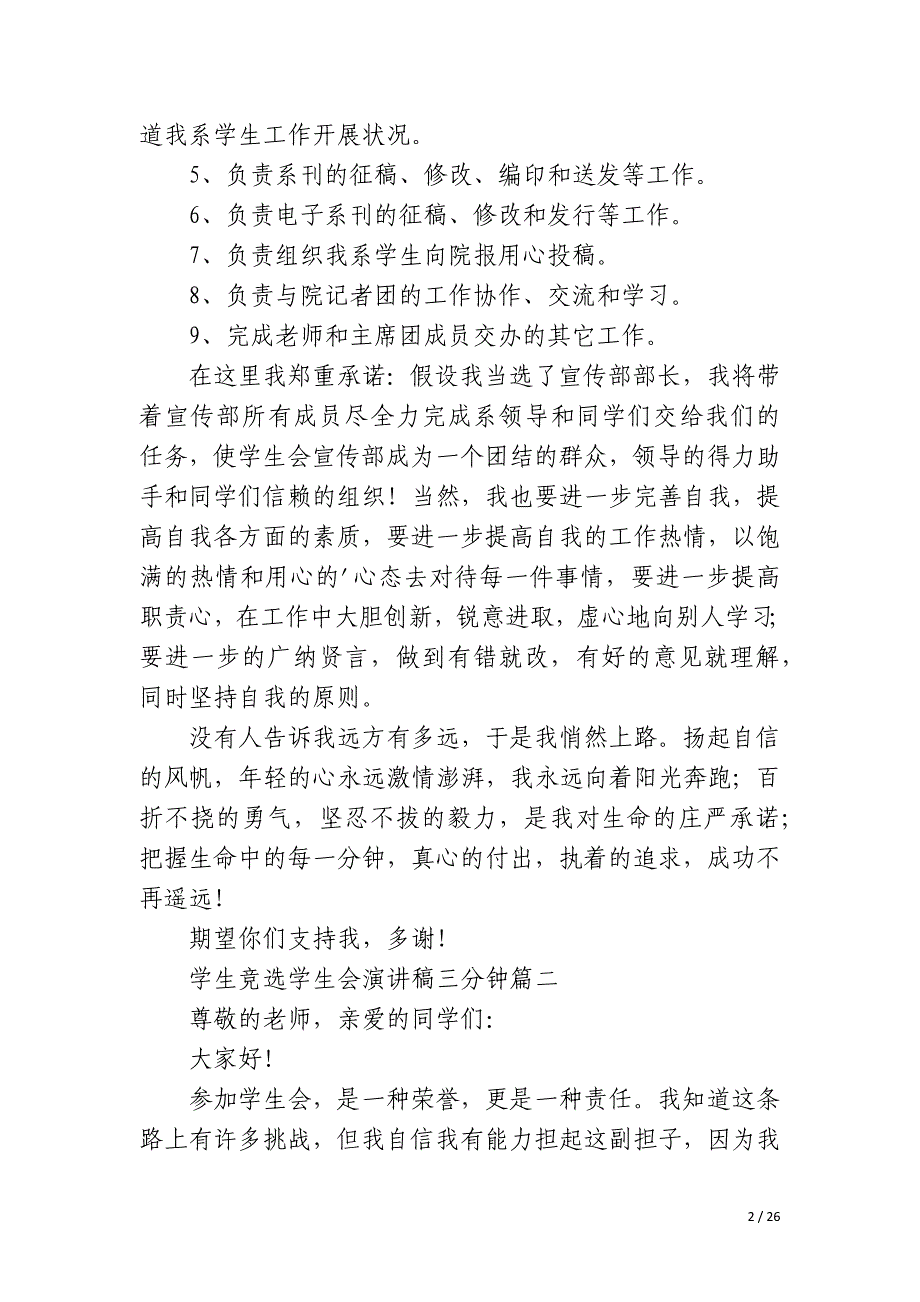 道我系学生工作开展状况。
5、负责系刊的征稿、修改、编印和送发等工作。
6、负责电子系刊的征稿、修改和发行等工作。
7、负责组织我系学生向院报用心投稿。
8、负责与院记者团的工作协作、交流和学习。
9、完成老师和主席团成员交办的其它工作。
在这里我郑重承诺：假设我当选了宣传部部长，我将带
着宣传部所有成员尽全力完成系领导和同学们交给我们的
任务，使学生会宣传部成为一个团结的群众，领导的得力助
手和同学们信赖的组织！当然，我也要进一步完善自我，提
高自我各方面的素质，要进一步提高自我的工作热情，以饱
满的热情和用心的′心态去对待每一件事情，要进一步提高
职责心，在工作中大胆创新，锐意进取，虚心地向别人学习；
要进一步的广纳贤言，做到有错就改，有好的意见就理解，
同时坚持自我的原则。
没有人告诉我远方有多远，于是我悄然上路。扬起自信
的风帆，年轻的心永远激情澎湃，我永远向着阳光奔跑；百
折不挠的勇气，坚忍不拔的毅力，是我对生命的庄严承诺；
把握生命中的每一分钟，真心的付出，执着的追求，成功不
再遥远！
期望你们支持我，多谢！
学生竞选学生会演讲稿三分钟篇二
尊敬的老师，亲爱的同学们：
大家好！
参加学生会，是一种荣誉，更是一种责任。我知道这条
路上有许多挑战，但我自信我有能力担起这副担子，因为我
2 / 26